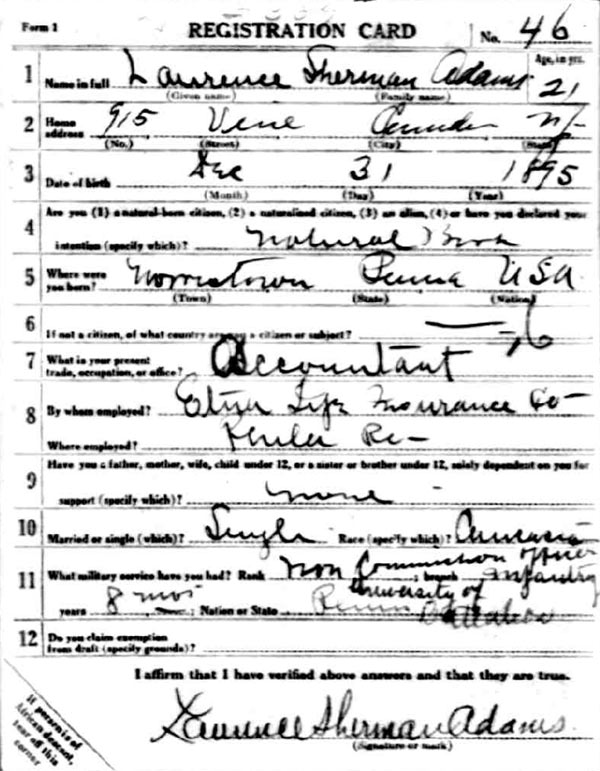 Form 1
REGISTRATION CARD
No. 46
1 Name in full Laurence Sherman Adams
(Given name) (Family name)
Age, in yrs.
21
2 Home address 915 Vine Camden NJ-
(No.) (Street) (City) (State)
3 Date of birth Dec 31 1895
(Month) (Day) (Year)
4 Are you (1) a natural-born citizen, (2) a naturalized citizen, (3) an alien, (4) or have you declared your
intention (specify which)? Natural Born
5 Where were you born? Norristown Penna USA
(Town) (State) (Nation)
6 If not a citizen, of what country are you a citizen or subject?
7 What is your present
trade, occupation, or office? Accountant
8 By whom employed? Etna Life Insurance Co-
Where employed? Phila Pa-
9 Have you a father, mother, wife, child under 12, or a sister or brother under 12, solely dependent on you for
support (specify which)? none
10 Married or single (which)? Single Race (specify which)? Caucasian
11 What military service have you had? Rank Non Commission officer; branch Infantry
years 8 mos; Nation or State University of
Penn Battalion
12 Do you claim exemption
from draft (specify grounds)?
I affirm that I have verified above answers and that they are true.
Laurence Sherman Adams
(Signature or mark)
If person is of
African descent,
tear off this
corner